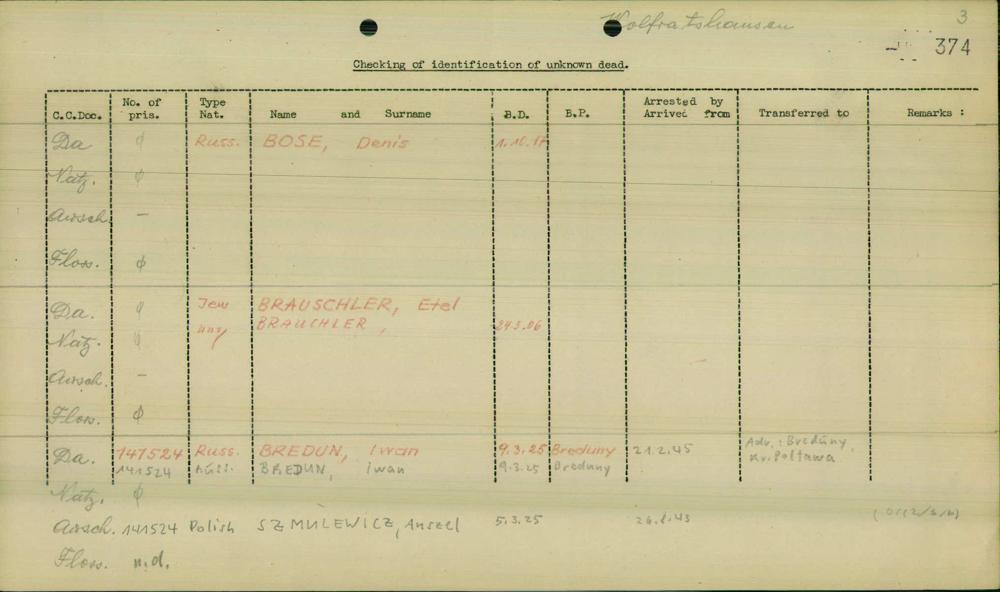 Wolfratshausen 3
374
Checking of identification of unknown dead.
C.C.Doc. No. of pris. Type Nat. Name and Surname B.D. B.P. Arrested by Arrived from Transferred to Remarks :
Da φ Russ. BOSE, Denis 1.10.17
Natz. φ
Ausch. —
Floss. φ
Da. φ Jew BRAUSCHLER, Etel
ung BRAUCHLER, 24.3.06
Natz. φ
Ausch. —
Floss. φ
Da. 141524 Russ. BREDUN, Iwan 9.3.25 Breduny 21.2.45 Adr.: Breduny
141524 Russ. BREDUN, Iwan 9.3.25 Breduny Kr. Poltawa
Natz. φ
Ausch. 141524 Polish SZMULEWICZ, Anszel 5.3.25 26.8.43
Floss. n.d.